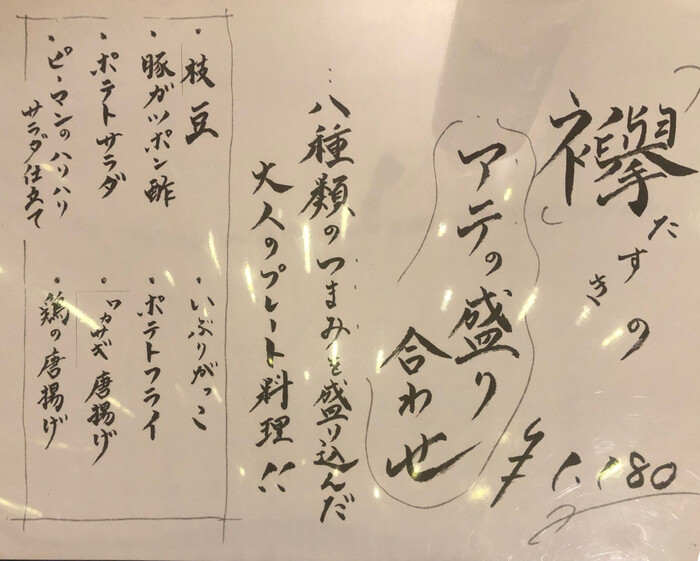 襷の
たすき
アテの盛り
合わせ
¥1,180
…八種類のつまみを盛り込んだ
大人のプレート料理!!
・枝豆
・豚ガツポン酢
・ポテトサラダ
・ピーマンのハリハリ
サラダ仕立て
・いぶりがっこ
・ポテトフライ
・ワカサギ唐揚げ
・鶏の唐揚げ